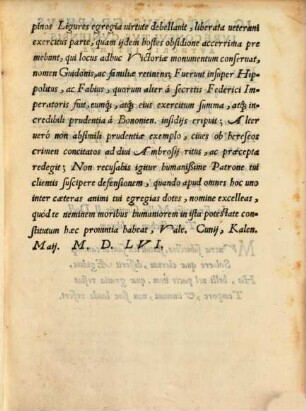 pinos Ligures egregia uirtute debellanit, liberata ueterani
exercitus parte, quam ijdem hostes obsidione acerrima pre
mebant, qui locus adhuc Victoriæ monumentum conseruat,
nomen Guidonis, ac familiæ retinens; Fuerunt insuper Hip
politus, ac Fabius, quorum alter à secretis Federici Im
peratoris fuit, eumq;, atq; eius exercitum summa, atq; in
credibili prudentia à Bononien. insidijs eripuit; Alter
uerò non absimili prudentiæ exemplo, ciues ob hereseos
crimen concitatos ad diui Ambrosij ritus, ac præcepta
redegit; Non recusabis igitur humanissime Patrone tui
clientis suscipere defensionem, quando apud omnes hoc uno
inter cæteras animi tui egregias dotes, nomine excelleas,
quòd te neminem moribus humaniorem in ista potestate con
stitutum hæc prouintia habeat, Vale. Cunij, Kalen.
Maij. M. D. LVI.